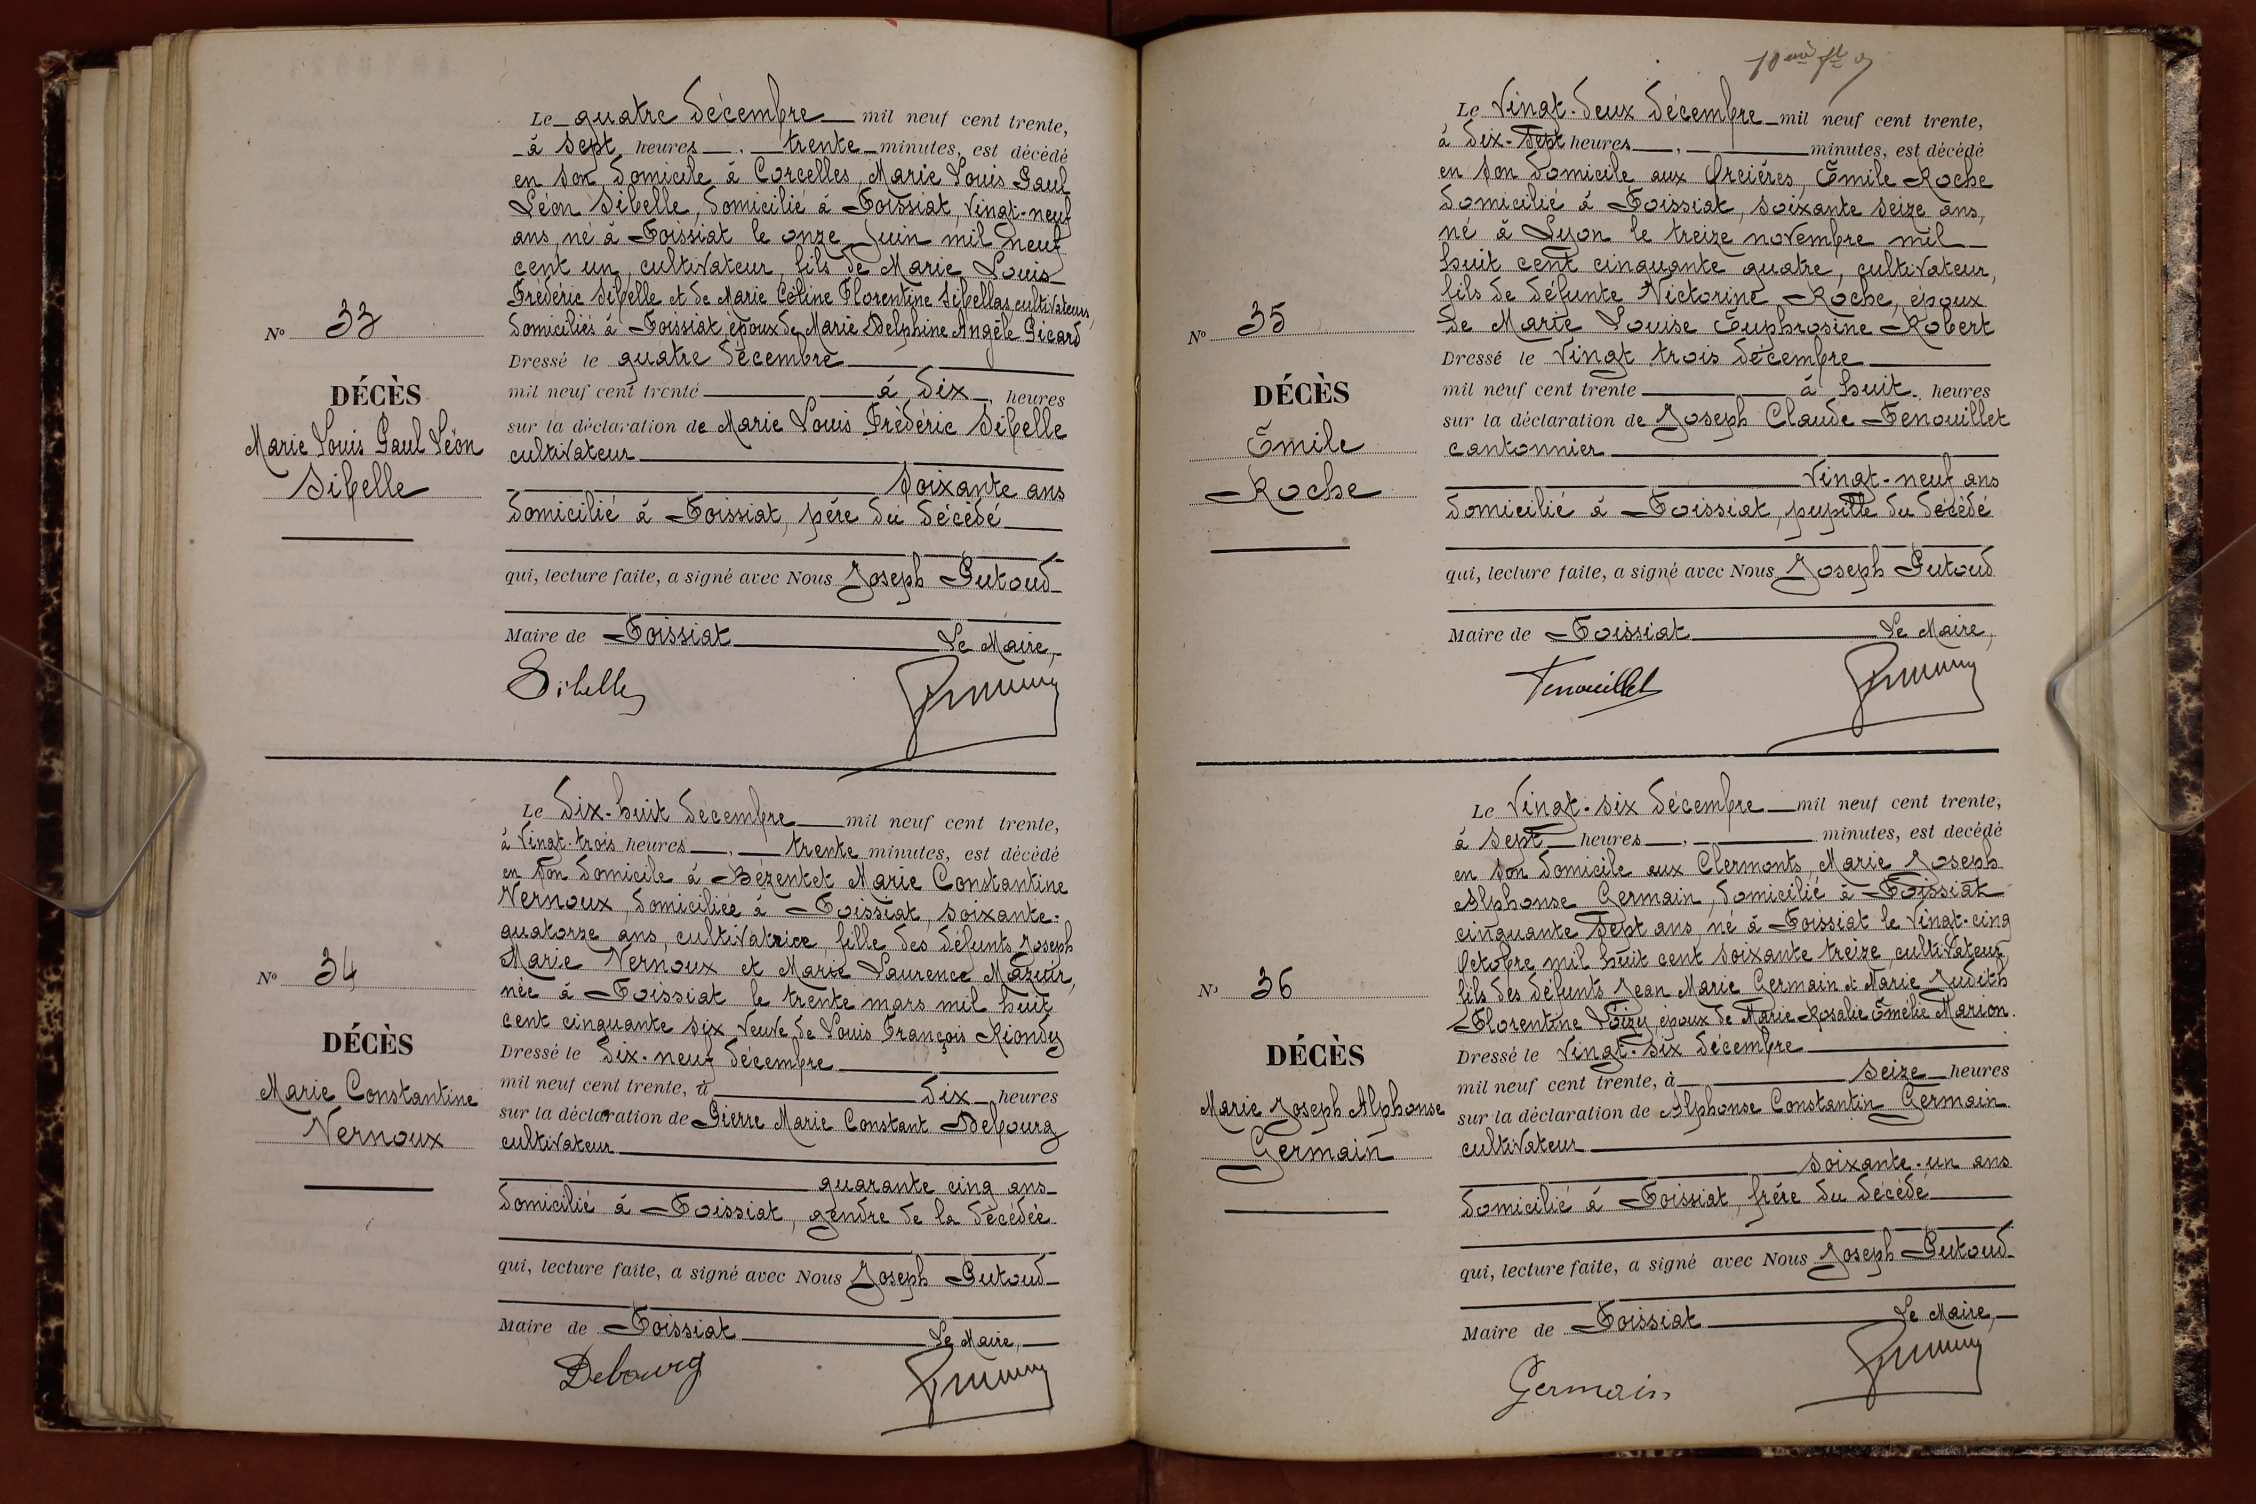 Le quatre décembre mil neuf cent trente,
à sept heures trente minutes, est décédé
en son domicile à Corcelles, Marie Louis Paul
Léon Sibelle, domicilié à Foissiat, vingt-neuf
ans, né à Foissiat le onze Juin mil neuf
cent un, cultivateur, fils de Marie Louis
Frédéric Sibelle et de Marie Céline Florentine Sibellas, cultivateurs,
domiciliés à Foissiat, époux de Marie Delphine Angèle Picard
Dressé le quatre décembre
mil neuf cent trente à dix heures
sur la déclaration de Marie Louis Frédéric Sibelle
cultivateur
soixante ans
domicilié à Foissiat, père du décédé
qui, lecture faite, a signé avec Nous Joseph Putoud
Maire de Foissiat Le Maire,
Sibelle
N° 33
DÉCÈS
Marie Louis Paul Léon
Sibelle
Le dix-huit décembre mil neuf cent trente,
à vingt-trois heures trente minutes, est décédé
en son domicile à Bézentet Marie Constantine
Vernoux, domiciliée à Foissiat, soixante-
quatorze ans, cultivatrice, fille des défunts Joseph
Marie Vernoux et Marie Laurence Mazuir,
née à Foissiat le trente mars mil huit
cent cinquante six, veuve de Louis François Riondy
Dressé le dix-neuf décembre
mil neuf cent trente, à dix heures
sur la déclaration de Pierre Marie Constant Debourg
cultivateur
quarante cinq ans
domicilié à Foissiat, gendre de la décédée
qui, lecture faite, a signé avec Nous Joseph Putoud
Maire de Foissiat Le Maire,
Debourg
N° 34
DÉCÈS
Marie Constantine
Vernoux
Le Vingt-deux décembre mil neuf cent trente,
à dix-sept heures minutes, est décédé
en son domicile aux Orcières, Emile Roche
domicilié à Foissiat, soixante seize ans,
né à Lyon le treize novembre mil
huit cent cinquante quatre, cultivateur,
fils de défunte Victorine Roche, époux
de Marie Louise Euphrosine Robert
Dressé le vingt trois décembre
mil neuf cent trente à huit heures
sur la déclaration de Joseph Claude Fenouillet
cantonnier
vingt-neuf ans
domicilié à Foissiat, pupille du décédé
qui, lecture faite, a signé avec Nous Joseph Putoud
Maire de Foissiat Le Maire,
Fenouillet
N° 35
DÉCÈS
Emile
Roche
Le Vingt-six décembre mil neuf cent trente,
à sept heures minutes, est décédé
en son domicile aux Clermonts, Marie Joseph
Alphonse Germain, domicilié à Foissiat
cinquante sept ans, né à Foissiat le vingt-cinq
Octobre mil huit cent soixante treize, cultivateur,
fils des défunts Jean Marie Germain et Marie Judith
Florentine époux de Marie Rosalie Emélie Marion.
Dressé le vingt-six décembre
mil neuf cent trente, à seize heures
sur la déclaration de Alphonse Constantin Germain
cultivateur
soixante-un ans
domicilié à Foissiat, frère du décédé
qui, lecture faite, a signé avec Nous Joseph Putoud
Maire de Foissiat Le Maire,
Germain
N° 36
DÉCÈS
Marie Joseph Alphonse
Germain